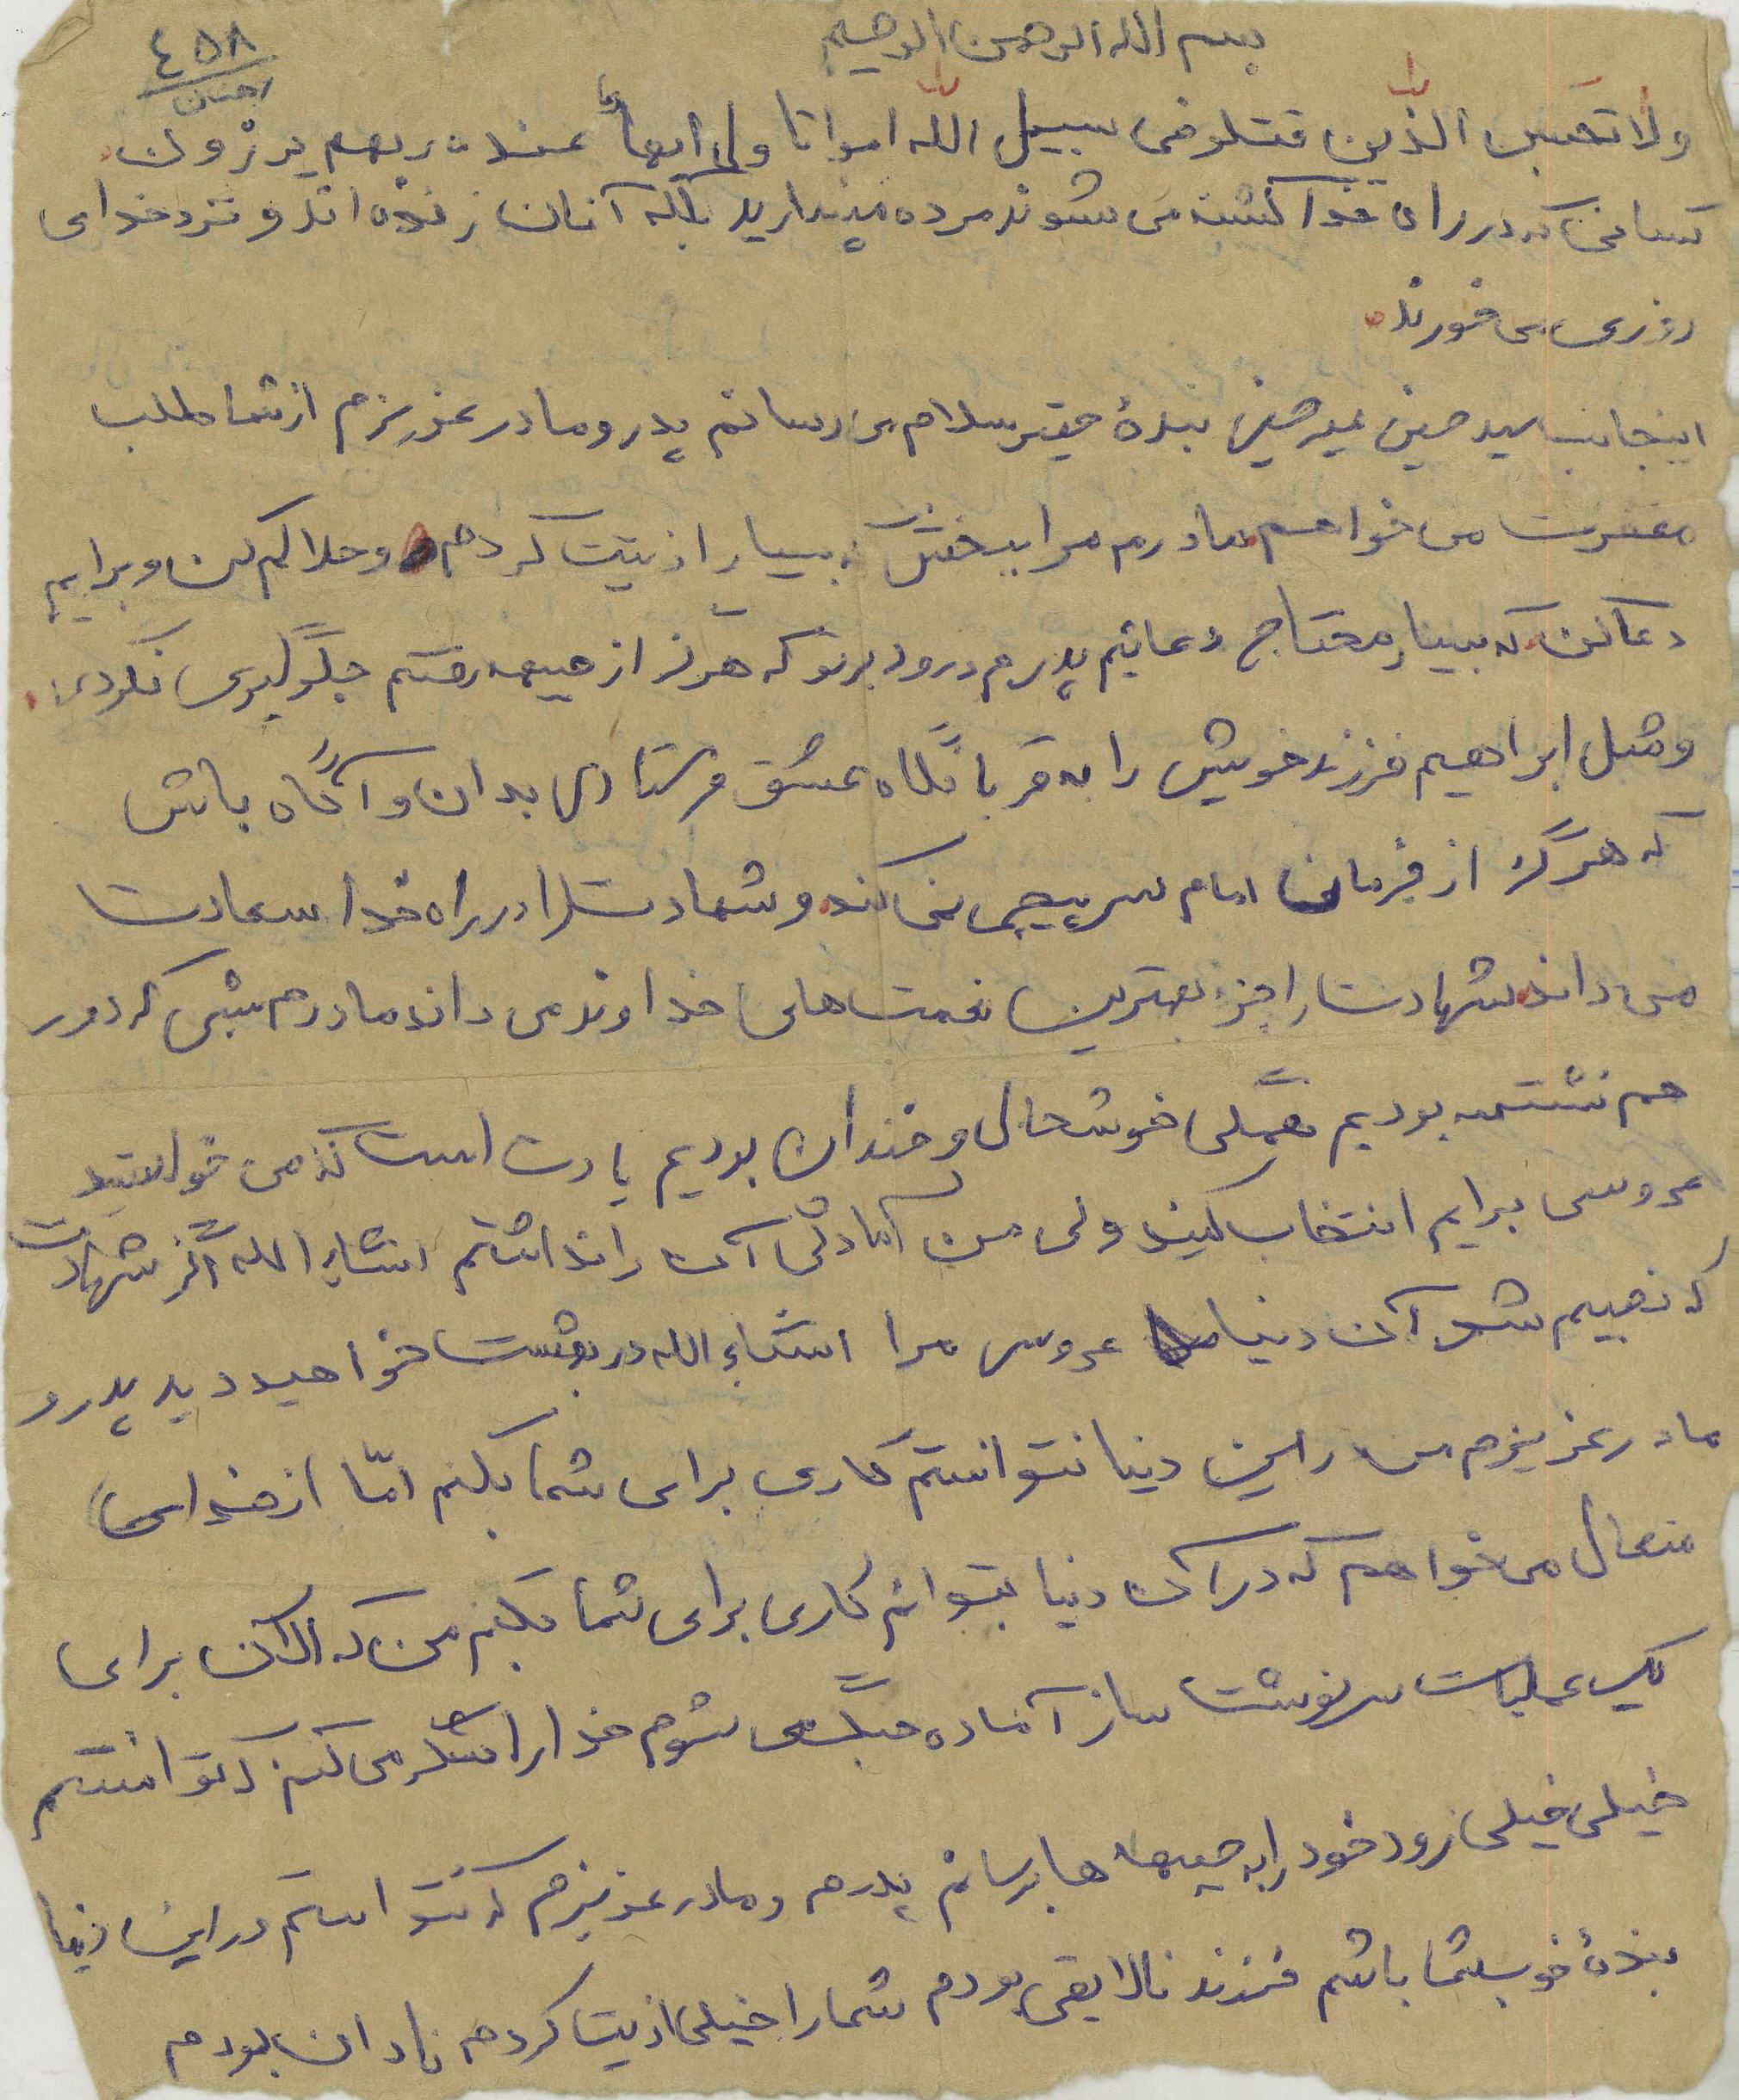 بسم الله الرحمن الرحیم
٤٥٨
ولا تحسبن الذین قتلو فی سبیل الله امواتا ولی ایها عنده ربهم یرزون
کسانی که در رای خدا کشته می شوند مرده مپندارید بلکه آنان زنده اند و نزد خدای
روزی می خورند
اینجانب سید حسین میرحسینی بندهٔ حقیر سلام می رسانم پدر و مادر عزیزم از شما طلب
مغفرت می خواهم مادرم مرا ببخش که بسیار اذیتت کردم و حلالم کن و برایم
دعا کن که بسیار محتاج دعائیم پدرم درود بر تو که هرگز از جبهه رفتم جلوگیری نکردی
و مثل ابراهیم فرزند خویش را به قربانگاه عشق فرستادی بدان و آگاه باش
که هرگز از فرمان امام سرپیچی نمی کند و شهادت را در راه خدا سعادت
می داند شهادت را جزء بهترین نعمت های خداوند می داند مادرم شبی که دور
هم نشسته بودیم همگی خوشحال و خندان بودیم یادت است که می خواستید
عروسی برایم انتخاب کنید ولی من آمادگی آن را نداشتم انشاء الله اگر شهادت
که نصیبم شد آن دنیا عروس مرا انشاء الله در بهشت خواهید دید پدر و
مادر عزیزم من در این دنیا نتوانستم کاری برای شما بکنم امّا از خدای
متعال می خواهم که در آن دنیا بتوانم کاری برای شما بکنم من که الآن برای
یک عملیات سرنوشت ساز آماده جنگ می شوم خدا را شکر می کنم که توانستم
خیلی خیلی زود خود را به جبهه ها برسانم پدرم و مادر عزیزم که نتوانستم در این دنیا
بندهٔ خوب شما باشم فرزند نالایقی بودم شما را خیلی اذیت کردم نادان بودم